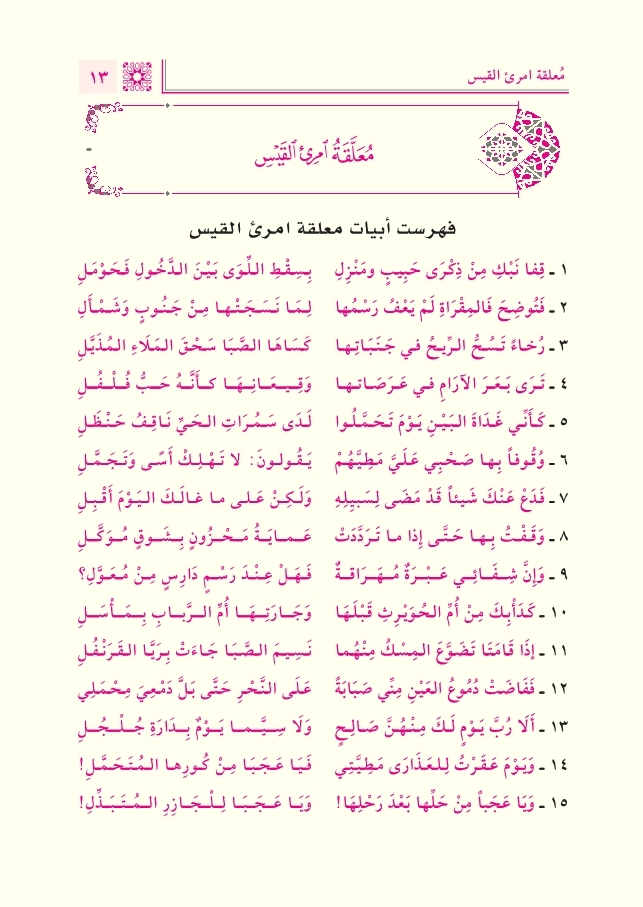 مُعلقة امرئ القيس
١٣
مُعَلَّقَةُ ٱمرِئِ ٱلقَيْسِ
فهرست أبيات معلقة امرئ القيس
١ ـ قِفا نَبْكِ مِنْ ذِكْرَى حَبِيبٍ ومَنْزِلِ بِسِقْطِ اللِّوَى بَيْنَ الدَّخُولِ فَحَوْمَلِ
٢ ـ فَتُوضِحَ فَالمِقْرَاةِ لَمْ يَعْفُ رَسْمُها لِمَا نَسَجَتْها مِنْ جَنُوبٍ وَشَمْأَلِ
٣ ـ رُخاءً تَسُحُّ الرِّيحُ في جَنَبَاتِها كَسَاهَا الصَّبَا سَحْقَ المَلَاءِ المُذَيَّلِ
٤ ـ تَرَى بَعَرَ الآرَامِ في عَرَصَاتها وَقِيعَانِهَا كأَنَّهُ حَبُّ فُلْفُلِ
٥ ـ كَأَنِّي غَدَاةَ البَيْنِ يَوْمَ تَحَمَّلُوا لَدَى سَمُرَاتِ الحَيِّ نَاقِفُ حَنْظَلِ
٦ ـ وُقُوفاً بِها صَحْبِي عَلَيَّ مَطِيَّهُمْ يَقُولونَ: لا تَهْلِكْ أَسًى وَتَجَمَّلِ
٧ ـ فَدَعْ عَنْكَ شَيئاً قَدْ مَضَى لِسَبيلِهِ وَلَكِنْ عَلى ما غالَكَ اليَوْمَ أَقْبِلِ
٨ ـ وَقَفْتُ بِها حَتَّى إِذا ما تَرَدَّدَتْ عَمايَةُ مَحْزُونٍ بِشَوقٍ مُوَكَّلِ
٩ ـ وَإِنَّ شِفَائِي عَبْرَةٌ مُهَرَاقَةٌ فَهَلْ عِنْدَ رَسْمٍ دَارِسٍ مِنْ مُعَوَّلِ؟
١٠ ـ كَدَأْبِكَ مِنْ أُمِّ الحُوَيْرِثِ قَبْلَهَا وَجَارَتِهَا أُمِّ الرَّبابِ بِمَأْسَلِ
١١ ـ إِذَا قَامَتَا تَضَوَّعَ المِسْكُ مِنْهُما نَسِيمَ الصَّبَا جَاءَتْ بِرَيَّا القَرَنْفُلِ
١٢ ـ فَفَاضَتْ دُمُوعُ العَيْنِ مِنِّي صَبَابَةً عَلَى النَّحْرِ حَتَّى بَلَّ دَمْعِيَ مِحْمَلِي
١٣ ـ أَلَا رُبَّ يَوْمٍ لَكَ مِنْهُنَّ صَالِحٍ وَلَا سِيَّما يَوْمٌ بِدَارَةِ جُلْجُلِ
١٤ ـ وَيَوْمَ عَقَرْتُ لِلعَذَارَى مَطِيَّتِي فَيَا عَجَبَا مِنْ كُورِها المُتَحَمَّلِ!
١٥ ـ وَيَا عَجَباً مِنْ حَلِّها بَعْدَ رَحْلِهَا! وَيَا عَجَبَا لِلْجَازِرِ المُتَبَذِّلِ!